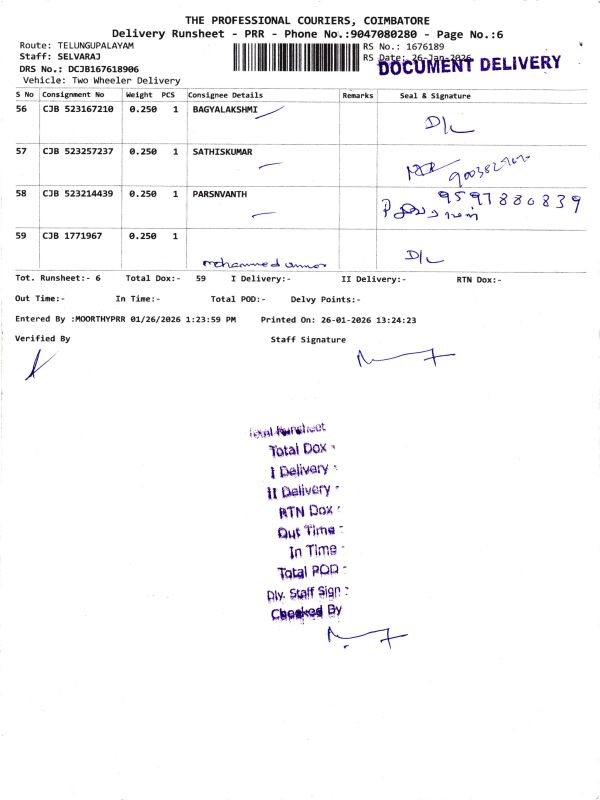 THE PROFESSIONAL COURIERS, COIMBATORE
Delivery Runsheet - PRR - Phone No.:9047080280 - Page No.:6
Route: TELUNGUPALAYAM
RS No.: 1676189
Staff: SELVARAJ
RS Date: 26-Jan-2026
DOCUMENT DELIVERY
DRS No.: DCJB167618906
Vehicle: Two Wheeler Delivery
S No Consignment No Weight PCS Consignee Details Remarks Seal & Signature
56 CJB 523167210 0.250 1 BAGYALAKSHMI D/L
57 CJB 523257237 0.250 1 SATHISKUMAR
58 CJB 523214439 0.250 1 PARSNVANTH 9597880839
59 CJB 1771967 0.250 1 D/L
mohammed
Tot. Runsheet:- 6 Total Dox:- 59 I Delivery:- II Delivery:- RTN Dox:-
Out Time:- In Time:- Total POD:- Delvy Points:-
Entered By :MOORTHYPRR 01/26/2026 1:23:59 PM Printed On: 26-01-2026 13:24:23
Verified By Staff Signature
Total Runsheet
Total Dox :
I Delivery :
II Delivery :
RTN Dox :
Out Time :
In Time :
Total POD :
Dly. Staff Sign :
Checked By